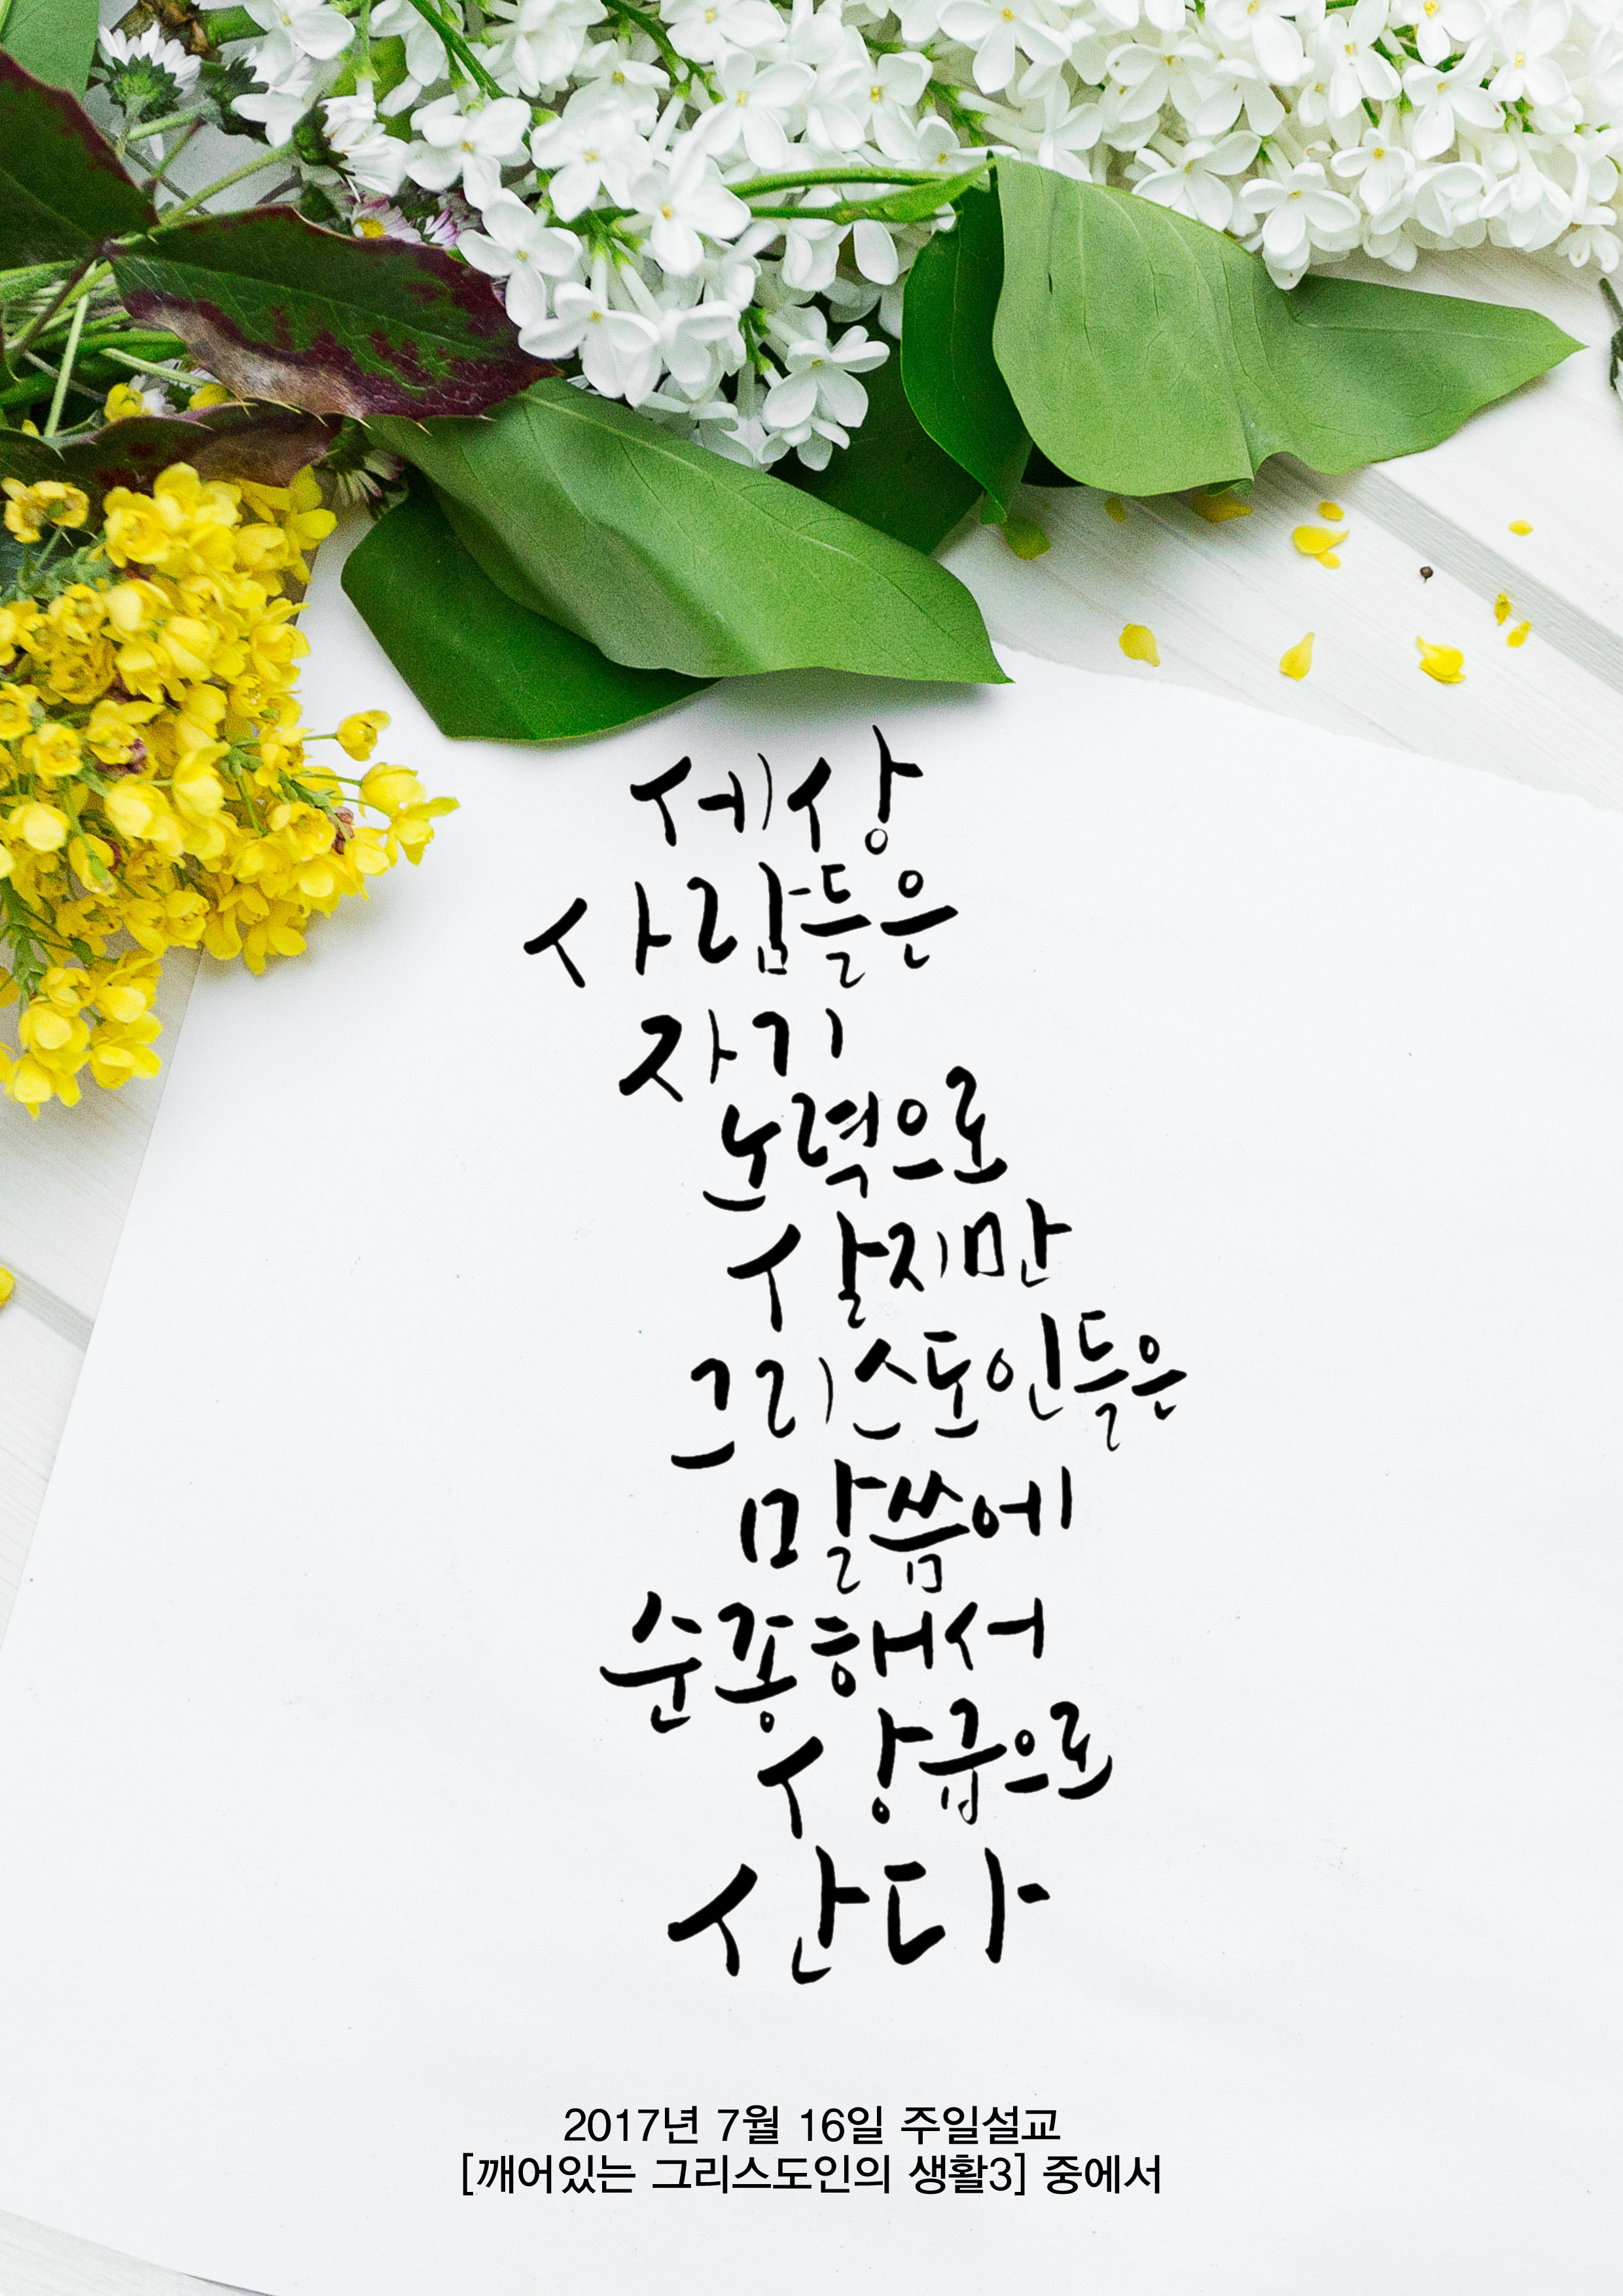 세상
사람들은
자기
노력으로
살지만
그리스도인들은
말씀에
순종해서
상급으로
산다
2017년 7월 16일 주일설교
[깨어있는 그리스도인의 생활3] 중에서